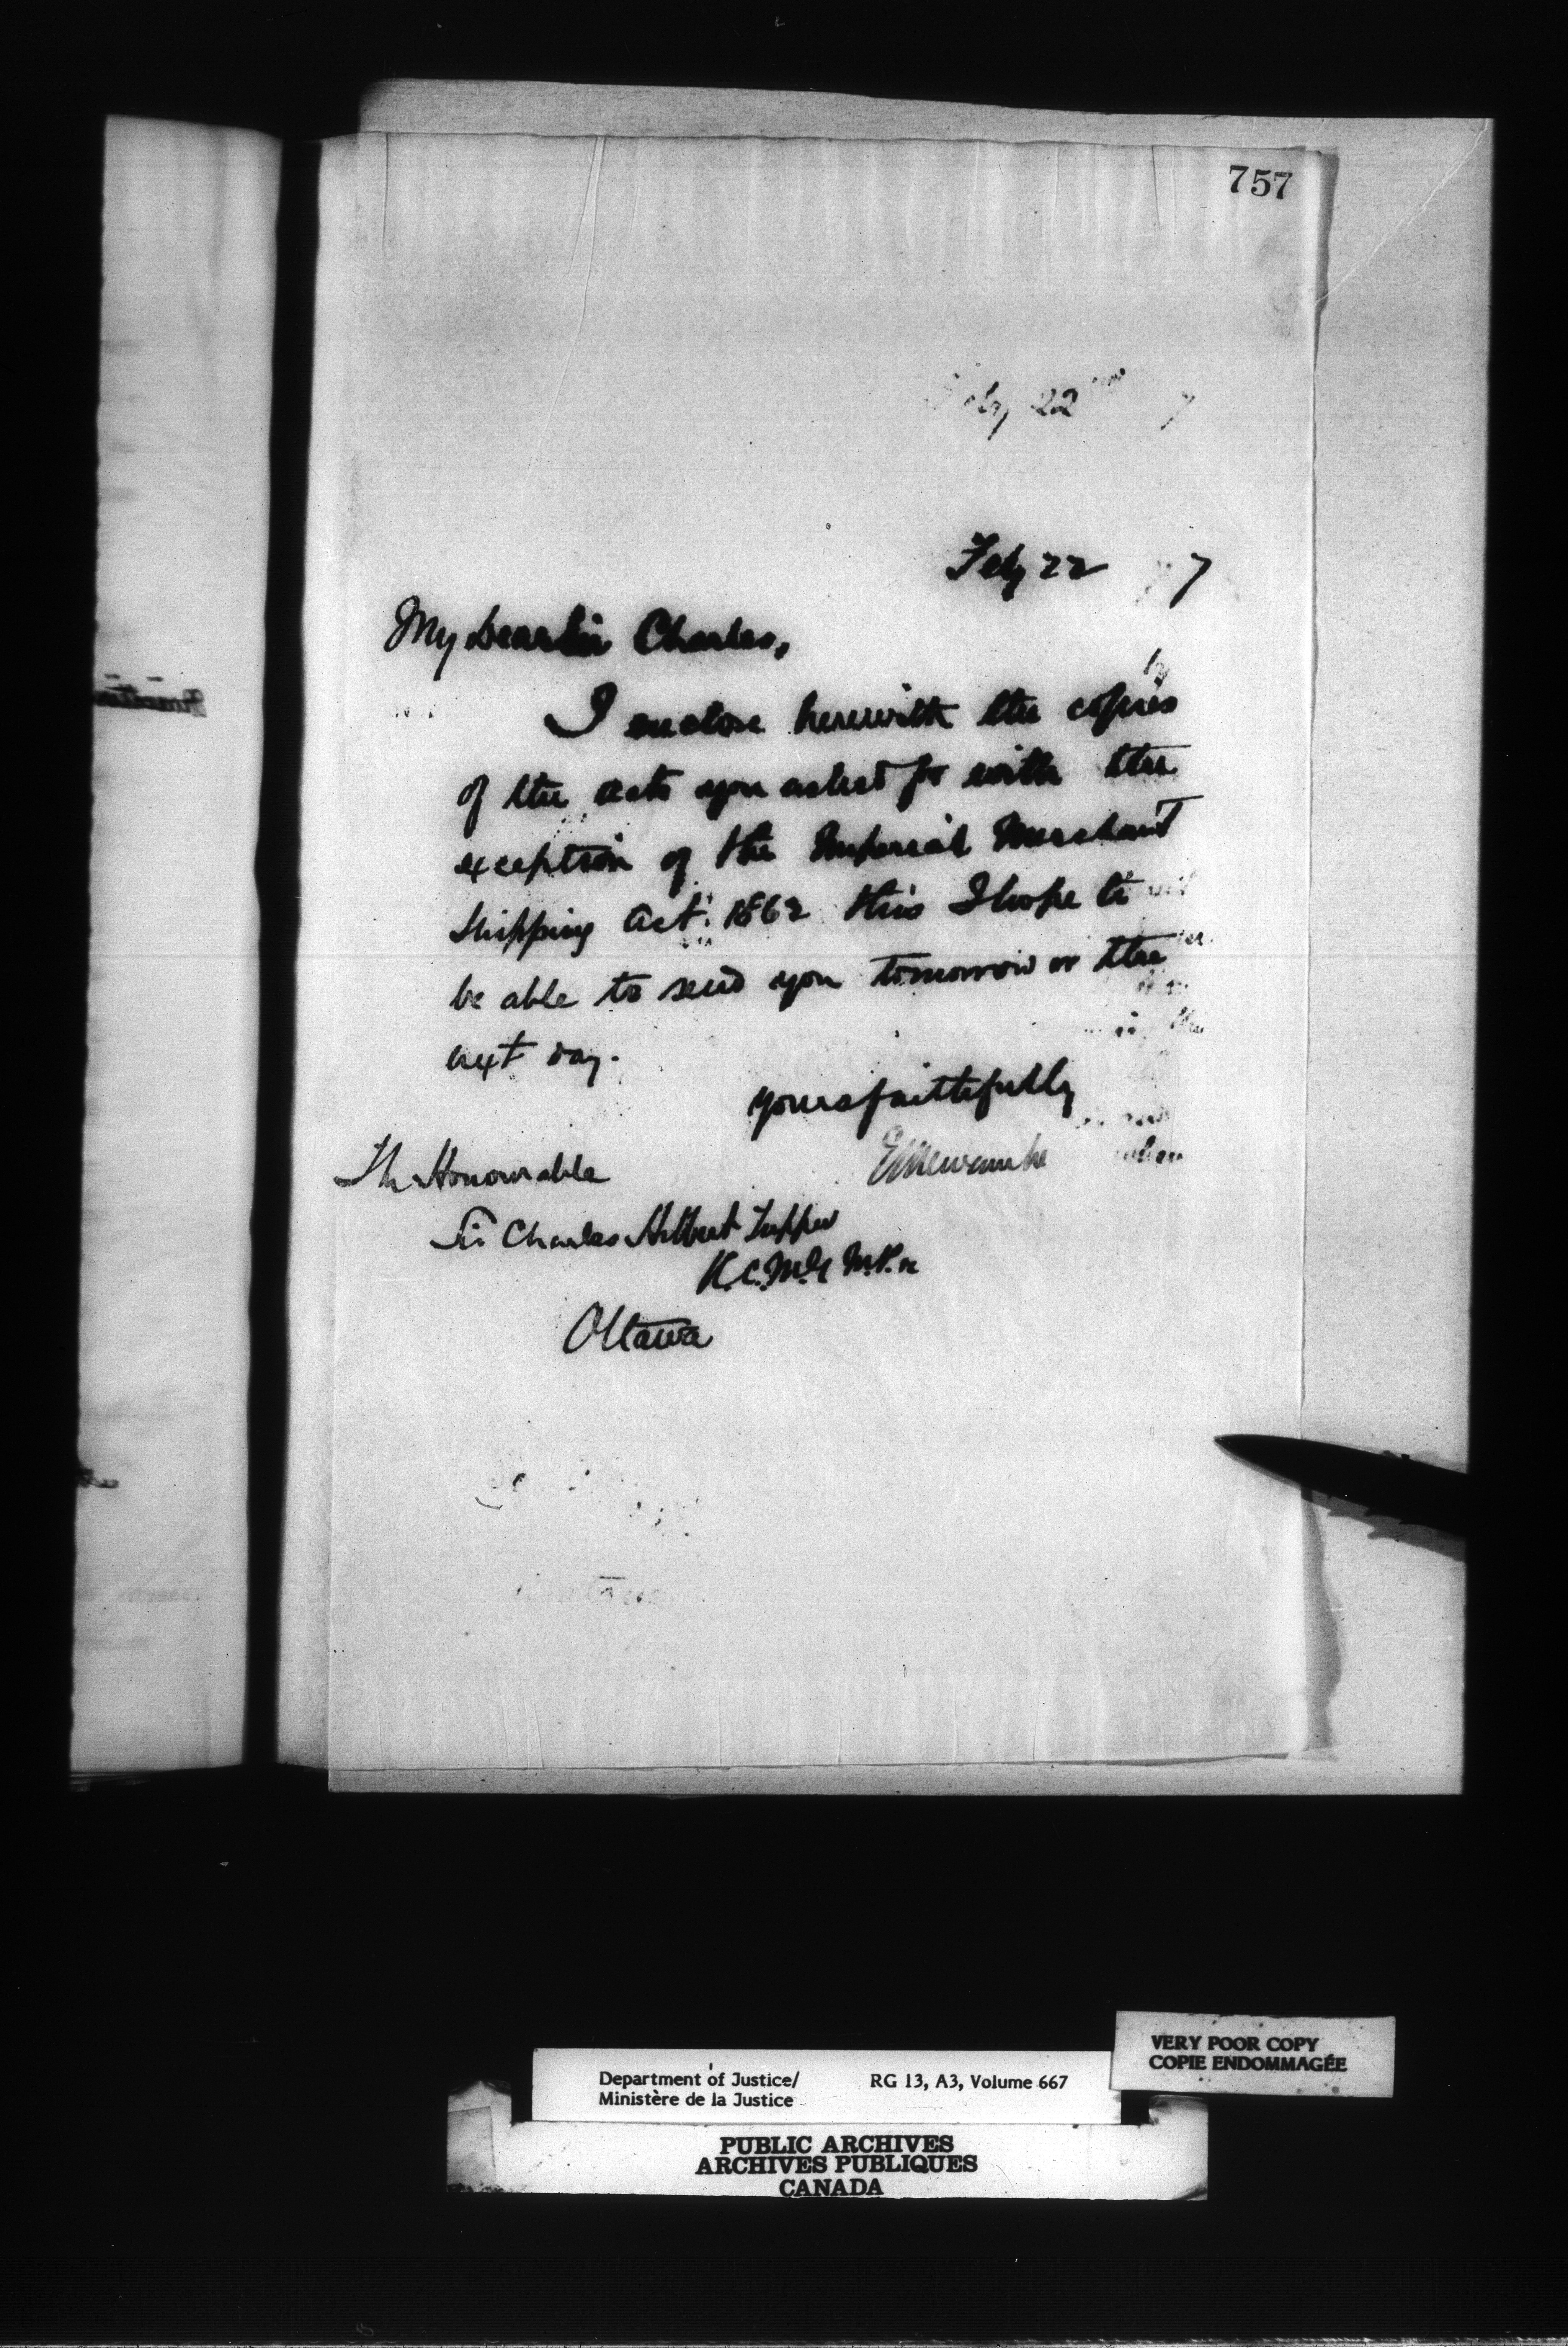 757
Feby 22 7
My Dear Sir Charles,
I enclose herewith the copies
of the acts you asked for with the
exception of the Imperial Merchant
Shipping Act. 1862 this I hope to
be able to send you tomorrow or the
next day.
yours faithfully
E L Newcombe
The Honourable
Sir Charles Hibbert Tupper
K.C.M.G M.P. &c
Ottawa
VERY POOR COPY
COPIE ENDOMMAGÉE
Department of Justice/ RG 13, A3, Volume 667
Ministère de la Justice
PUBLIC ARCHIVES
ARCHIVES PUBLIQUES
CANADA